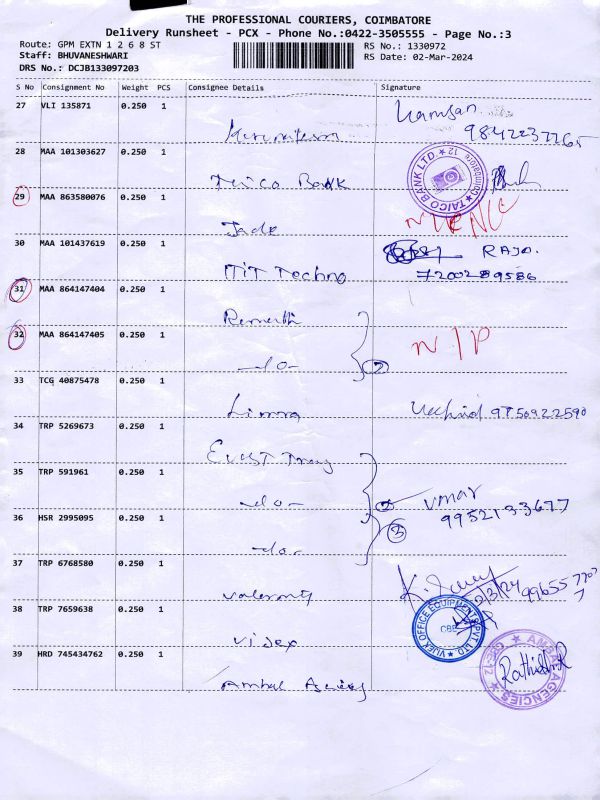 THE PROFESSIONAL COURIERS, COIMBATORE
Delivery Runsheet - PCX - Phone No.:0422-3505555 - Page No.:3
Route: GPM EXTN 1 2 6 8 ST
RS No.: 1330972
Staff: BHUVANESHWARI
RS Date: 02-Mar-2024
DRS No.: DCJB133097203
S No Consignment No Weight PCS Consignee Details Signature
27 VLI 135871 0.250 1
9842237765
28 MAA 101303627 0.250 1
Taico Bank
TAICO BANK LTD
29 MAA 863580076 0.250 1
Jade
30 MAA 101437619 0.250 1
RAJO.
ITIT Techno
7200289586
31 MAA 864147404 0.250 1
32 MAA 864147405 0.250 1
N/P
-do-
2
33 TCG 40875478 0.250 1
Limra
9750922590
34 TRP 5269673 0.250 1
35 TRP 591961 0.250 1
-do-
Umar
9952133677
36 HSR 2995095 0.250 1
3
-do-
37 TRP 6768580 0.250 1
38 TRP 7659638 0.250 1
Vijex
VIJEX OFFICE EQUIPMENT PVT LTD
39 HRD 745434762 0.250 1
Ambal Agency
AMBAL AGENCIES
Rathish.R